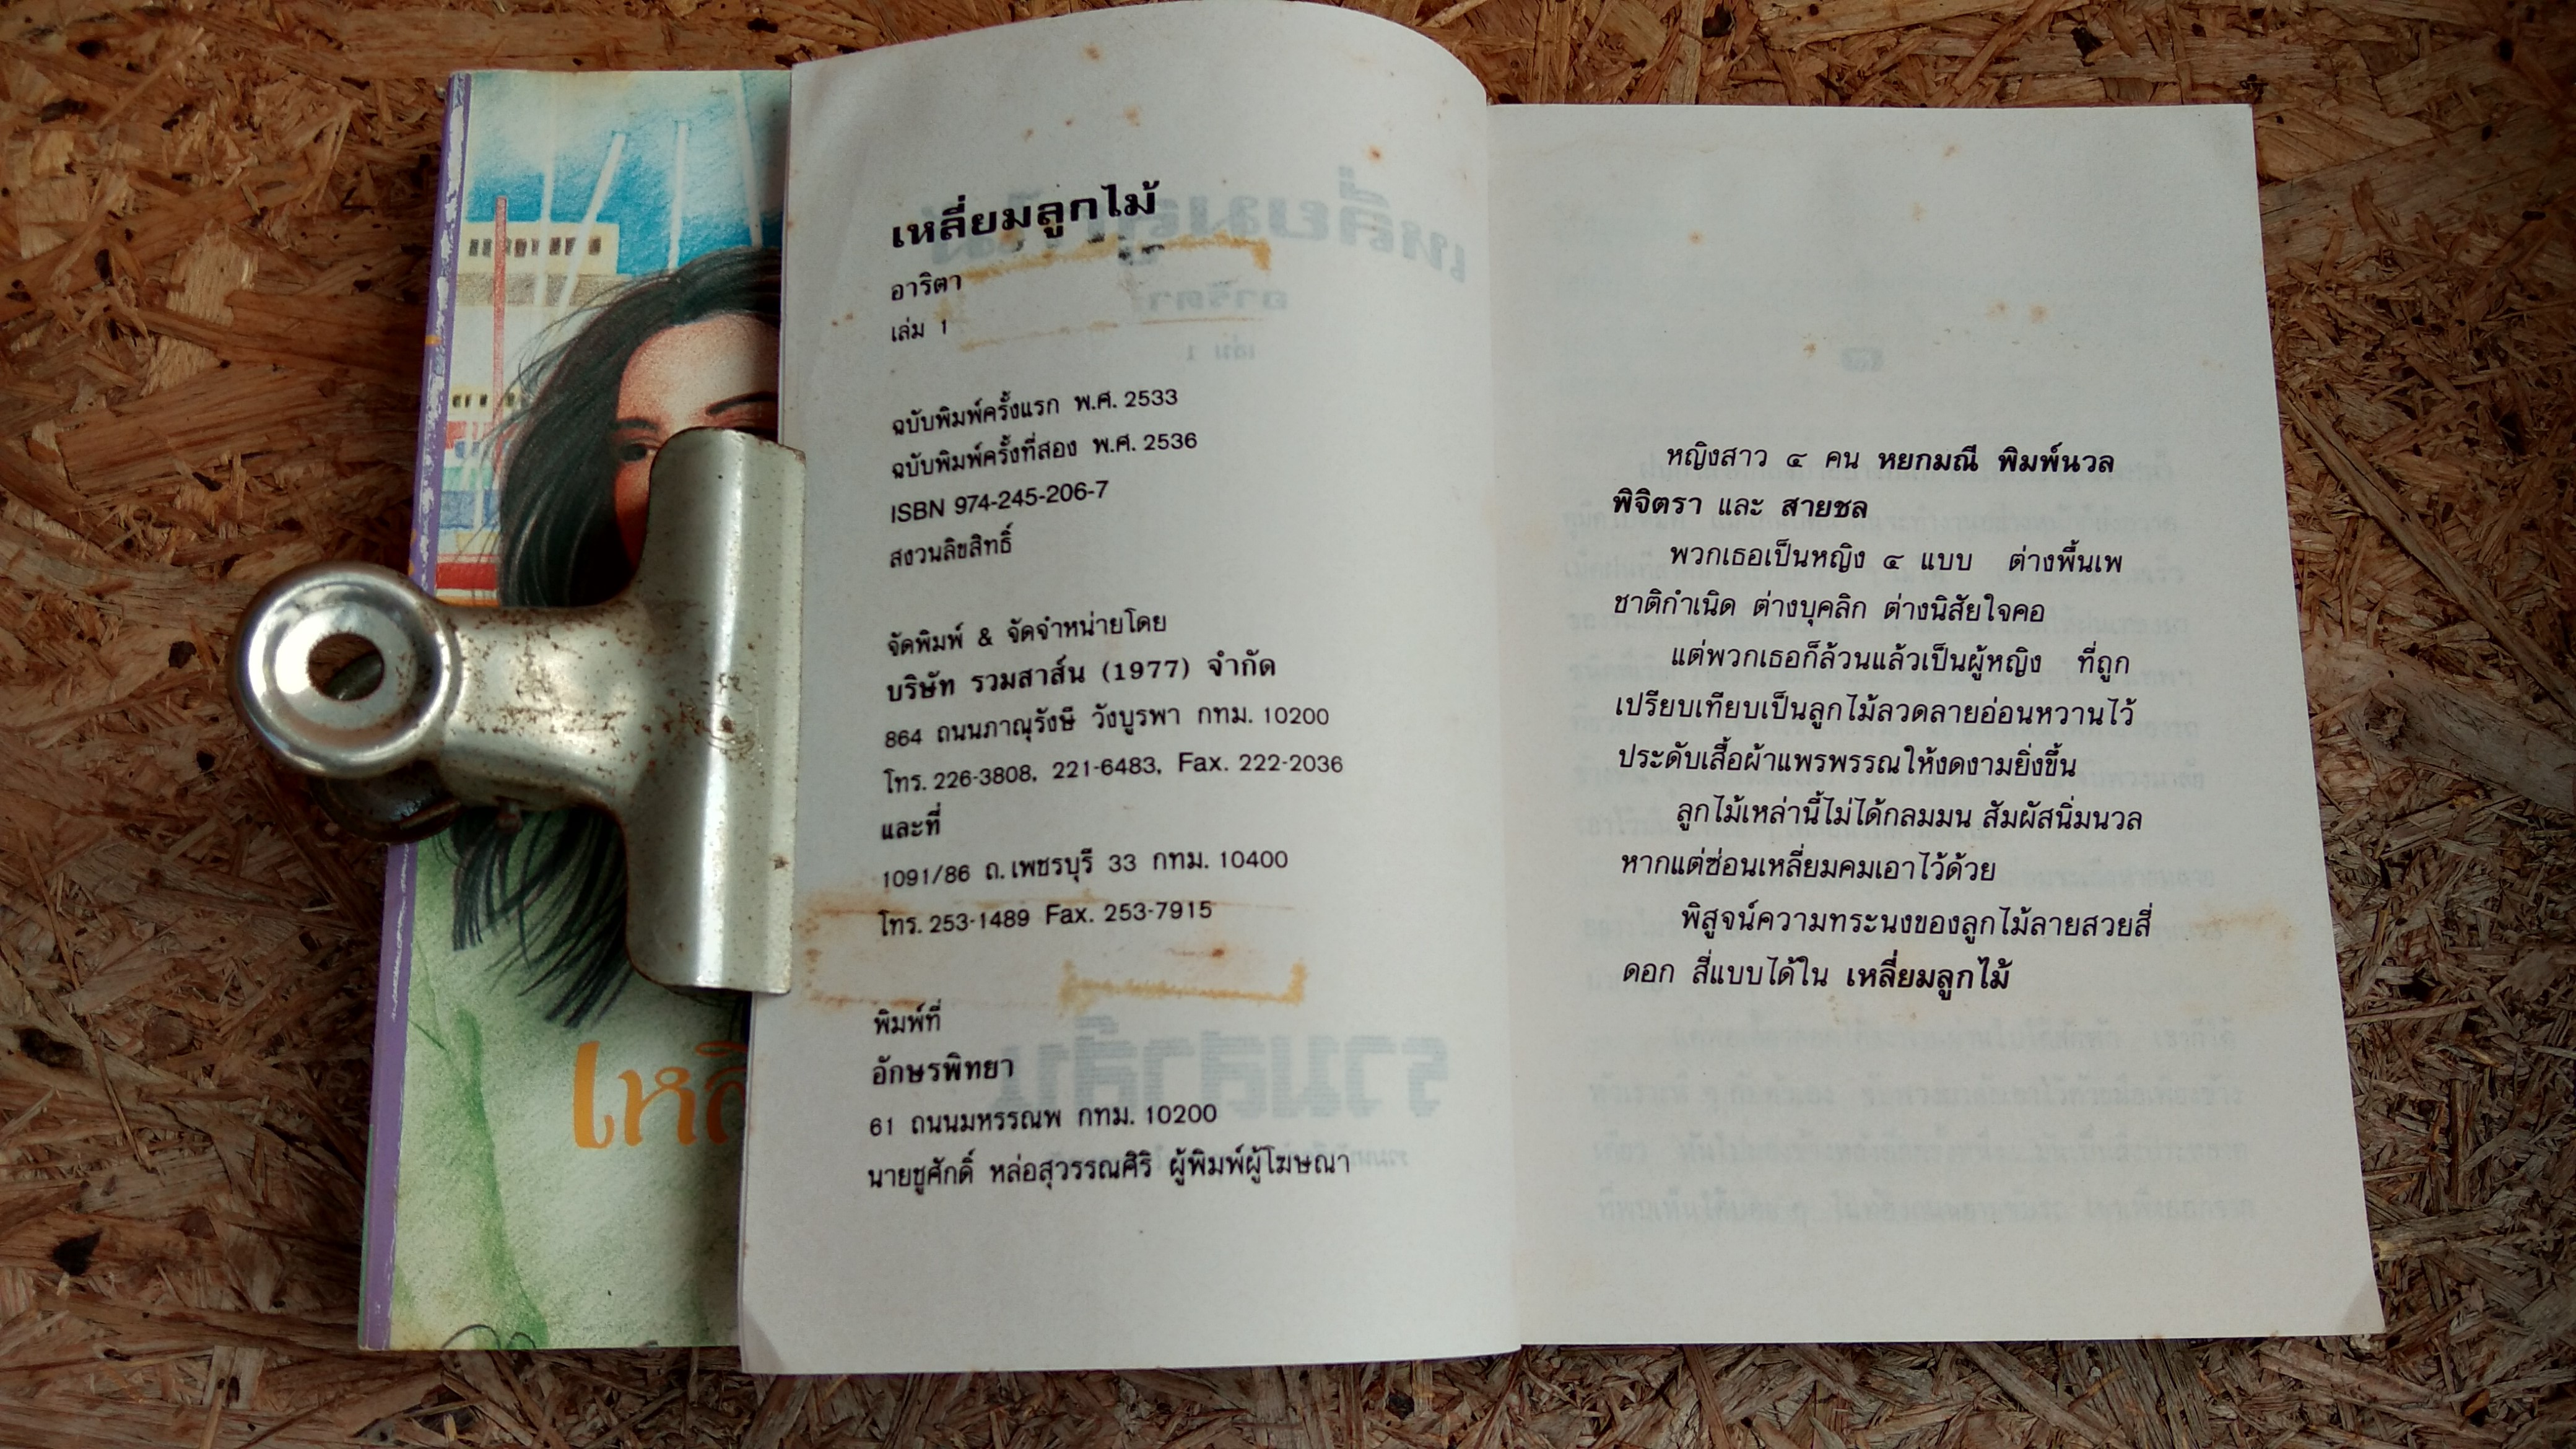 เหลี่ยมลูกไม้
อาริตา
เล่ม 1
ฉบับพิมพ์ครั้งแรก พ.ศ. 2533
ฉบับพิมพ์ครั้งที่สอง พ.ศ. 2536
ISBN 974-245-206-7
สงวนลิขสิทธิ์
จัดพิมพ์ & จัดจำหน่ายโดย
บริษัท รวมสาส์น (1977) จำกัด
864 ถนนภาณุรังษี วังบูรพา กทม. 10200
โทร. 226-3808, 221-6483, Fax. 222-2036
และที่
1091/86 ถ. เพชรบุรี 33 กทม. 10400
โทร. 253-1489 Fax. 253-7915
พิมพ์ที่
อักษรพิทยา
61 ถนนมหรรณพ กทม. 10200
นายชูศักดิ์ หล่อสุวรรณศิริ ผู้พิมพ์ผู้โฆษณา
หญิงสาว ๔ คน หยกมณี พิมพ์นวล
พิจิตรา และ สายชล
พวกเธอเป็นหญิง ๔ แบบ ต่างพื้นเพ
ชาติกำเนิด ต่างบุคลิก ต่างนิสัยใจคอ
แต่พวกเธอก็ล้วนแล้วเป็นผู้หญิง ที่ถูก
เปรียบเทียบเป็นลูกไม้ลวดลายอ่อนหวานไว้
ประดับเสื้อผ้าแพรพรรณให้งดงามยิ่งขึ้น
ลูกไม้เหล่านี้ไม่ได้กลมมน สัมผัสนิ่มนวล
หากแต่ซ่อนเหลี่ยมคมเอาไว้ด้วย
พิสูจน์ความทระนงของลูกไม้ลายสวยสี่
ดอก สี่แบบได้ใน เหลี่ยมลูกไม้